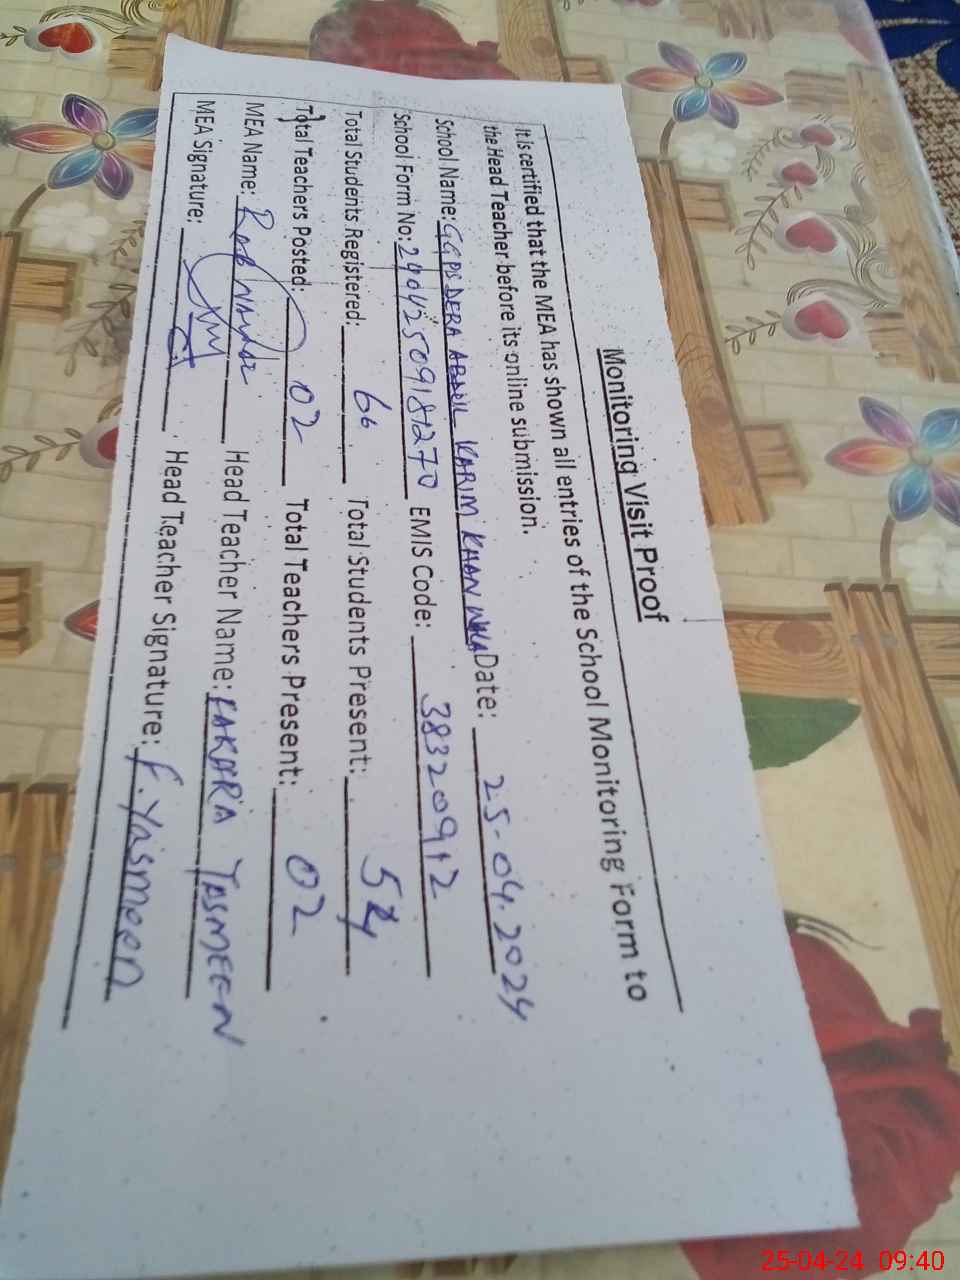 Monitoring Visit Proof
It is certified that the MEA has shown all entries of the School Monitoring Form to
the Head Teacher before its online submission.
School Name: GGPS DERA ABDUL KARIM KHAN WALA Date: 25-04.2024
School Form No: 24042509181270 EMIS Code: 38320912
Total Students Registered: 66 Total Students Present: 54
Total Teachers Posted: 02 Total Teachers Present: 02
MEA Name: Rab Nawaz Head Teacher Name: FAKHRA YASMEEN
MEA Signature: Head Teacher Signature: F. Yasmeen
25-04-24 09:40